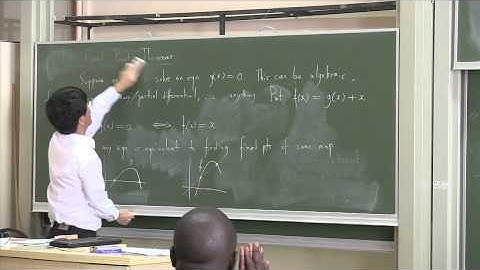 Fixed Pt Theorem
Suppose solve an eqn g(x) = 0. This can be algebraic,
/partial differential, ... anything Put f(x) = g(x) + x
g(x) = 0 ⟺ f(x) = x
any eqn is equivalent to finding fixed pts of some map